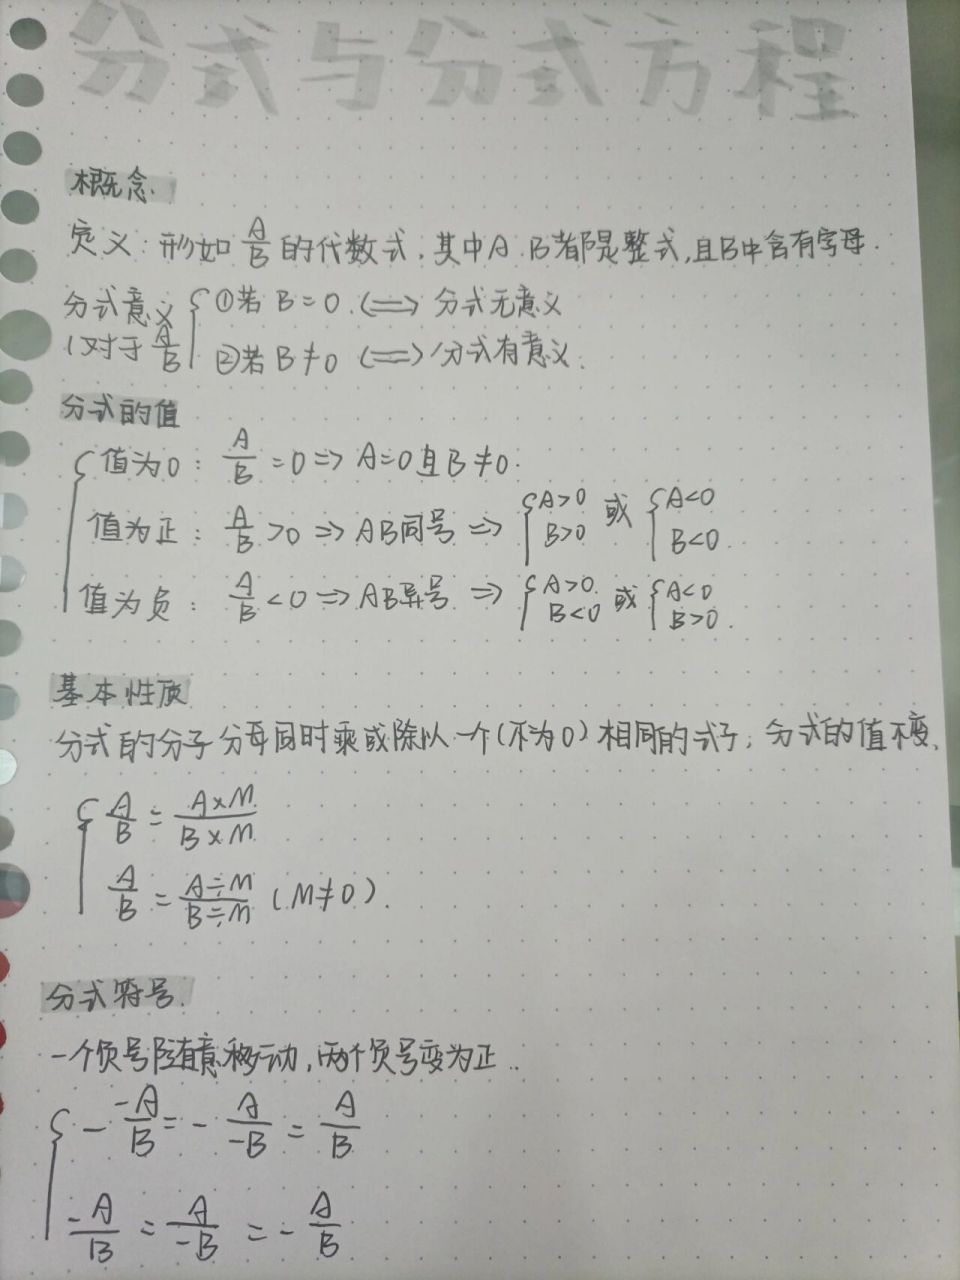 分式与分式方程
概念.
定义:形如 A/B 的代数式,其中A、B都是整式,且B中含有字母.
分式意义 { ①若 B=0 (⟺) 分式无意义
(对于 A/B ②若 B≠0 (⟺) 分式有意义.
分式的值
{ 值为0: A/B =0 ⇒ A=0且B≠0.
值为正: A/B >0 ⇒ AB同号 ⇒ { A>0 B>0 或 { A<0 B<0.
值为负: A/B <0 ⇒ AB异号 ⇒ { A>0 B<0 或 { A<0 B>0.
基本性质
分式的分子分母同时乘或除以一个(不为0)相同的式子,分式的值不变.
{ A/B = A×M/B×M
A/B = A÷M/B÷M (M≠0).
分式符号.
一个负号随意移动,两个负号变为正..
{ - -A/B = - A/-B = A/B
-A/B = A/-B = - A/B